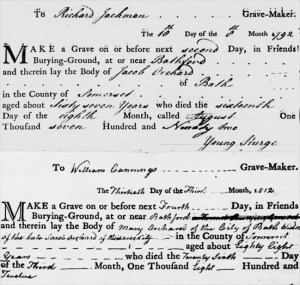 To Richard Jackman Grave-Maker.
The 16th Day of the 8 Month, 1792
MAKE a Grave on or before next second Day, in Friends
Burying-Ground, at or near Bathford
and therein lay the Body of Jacob Orchard
of Bath
in the County of Somerset
aged about Sixty seven Years who died the sixteenth
Day of the eighth Month, called August One
Thousand seven Hundred and Ninety two
Young Sturge
To William Cannings Grave-Maker.
The Thirtieth Day of the Third Month, 1812
MAKE a Grave on or before next Fourth Day, in Friends
Burying-Ground, at or near Bathford
and therein lay the Body of Mary Orchard of the City of Bath Widow
of the late Jacob Orchard of the same City in the County of Somerset
aged about Eighty Eight
Years who died the Twenty Sixth Day
of the Third Month, One Thousand Eight Hundred and
Twelve